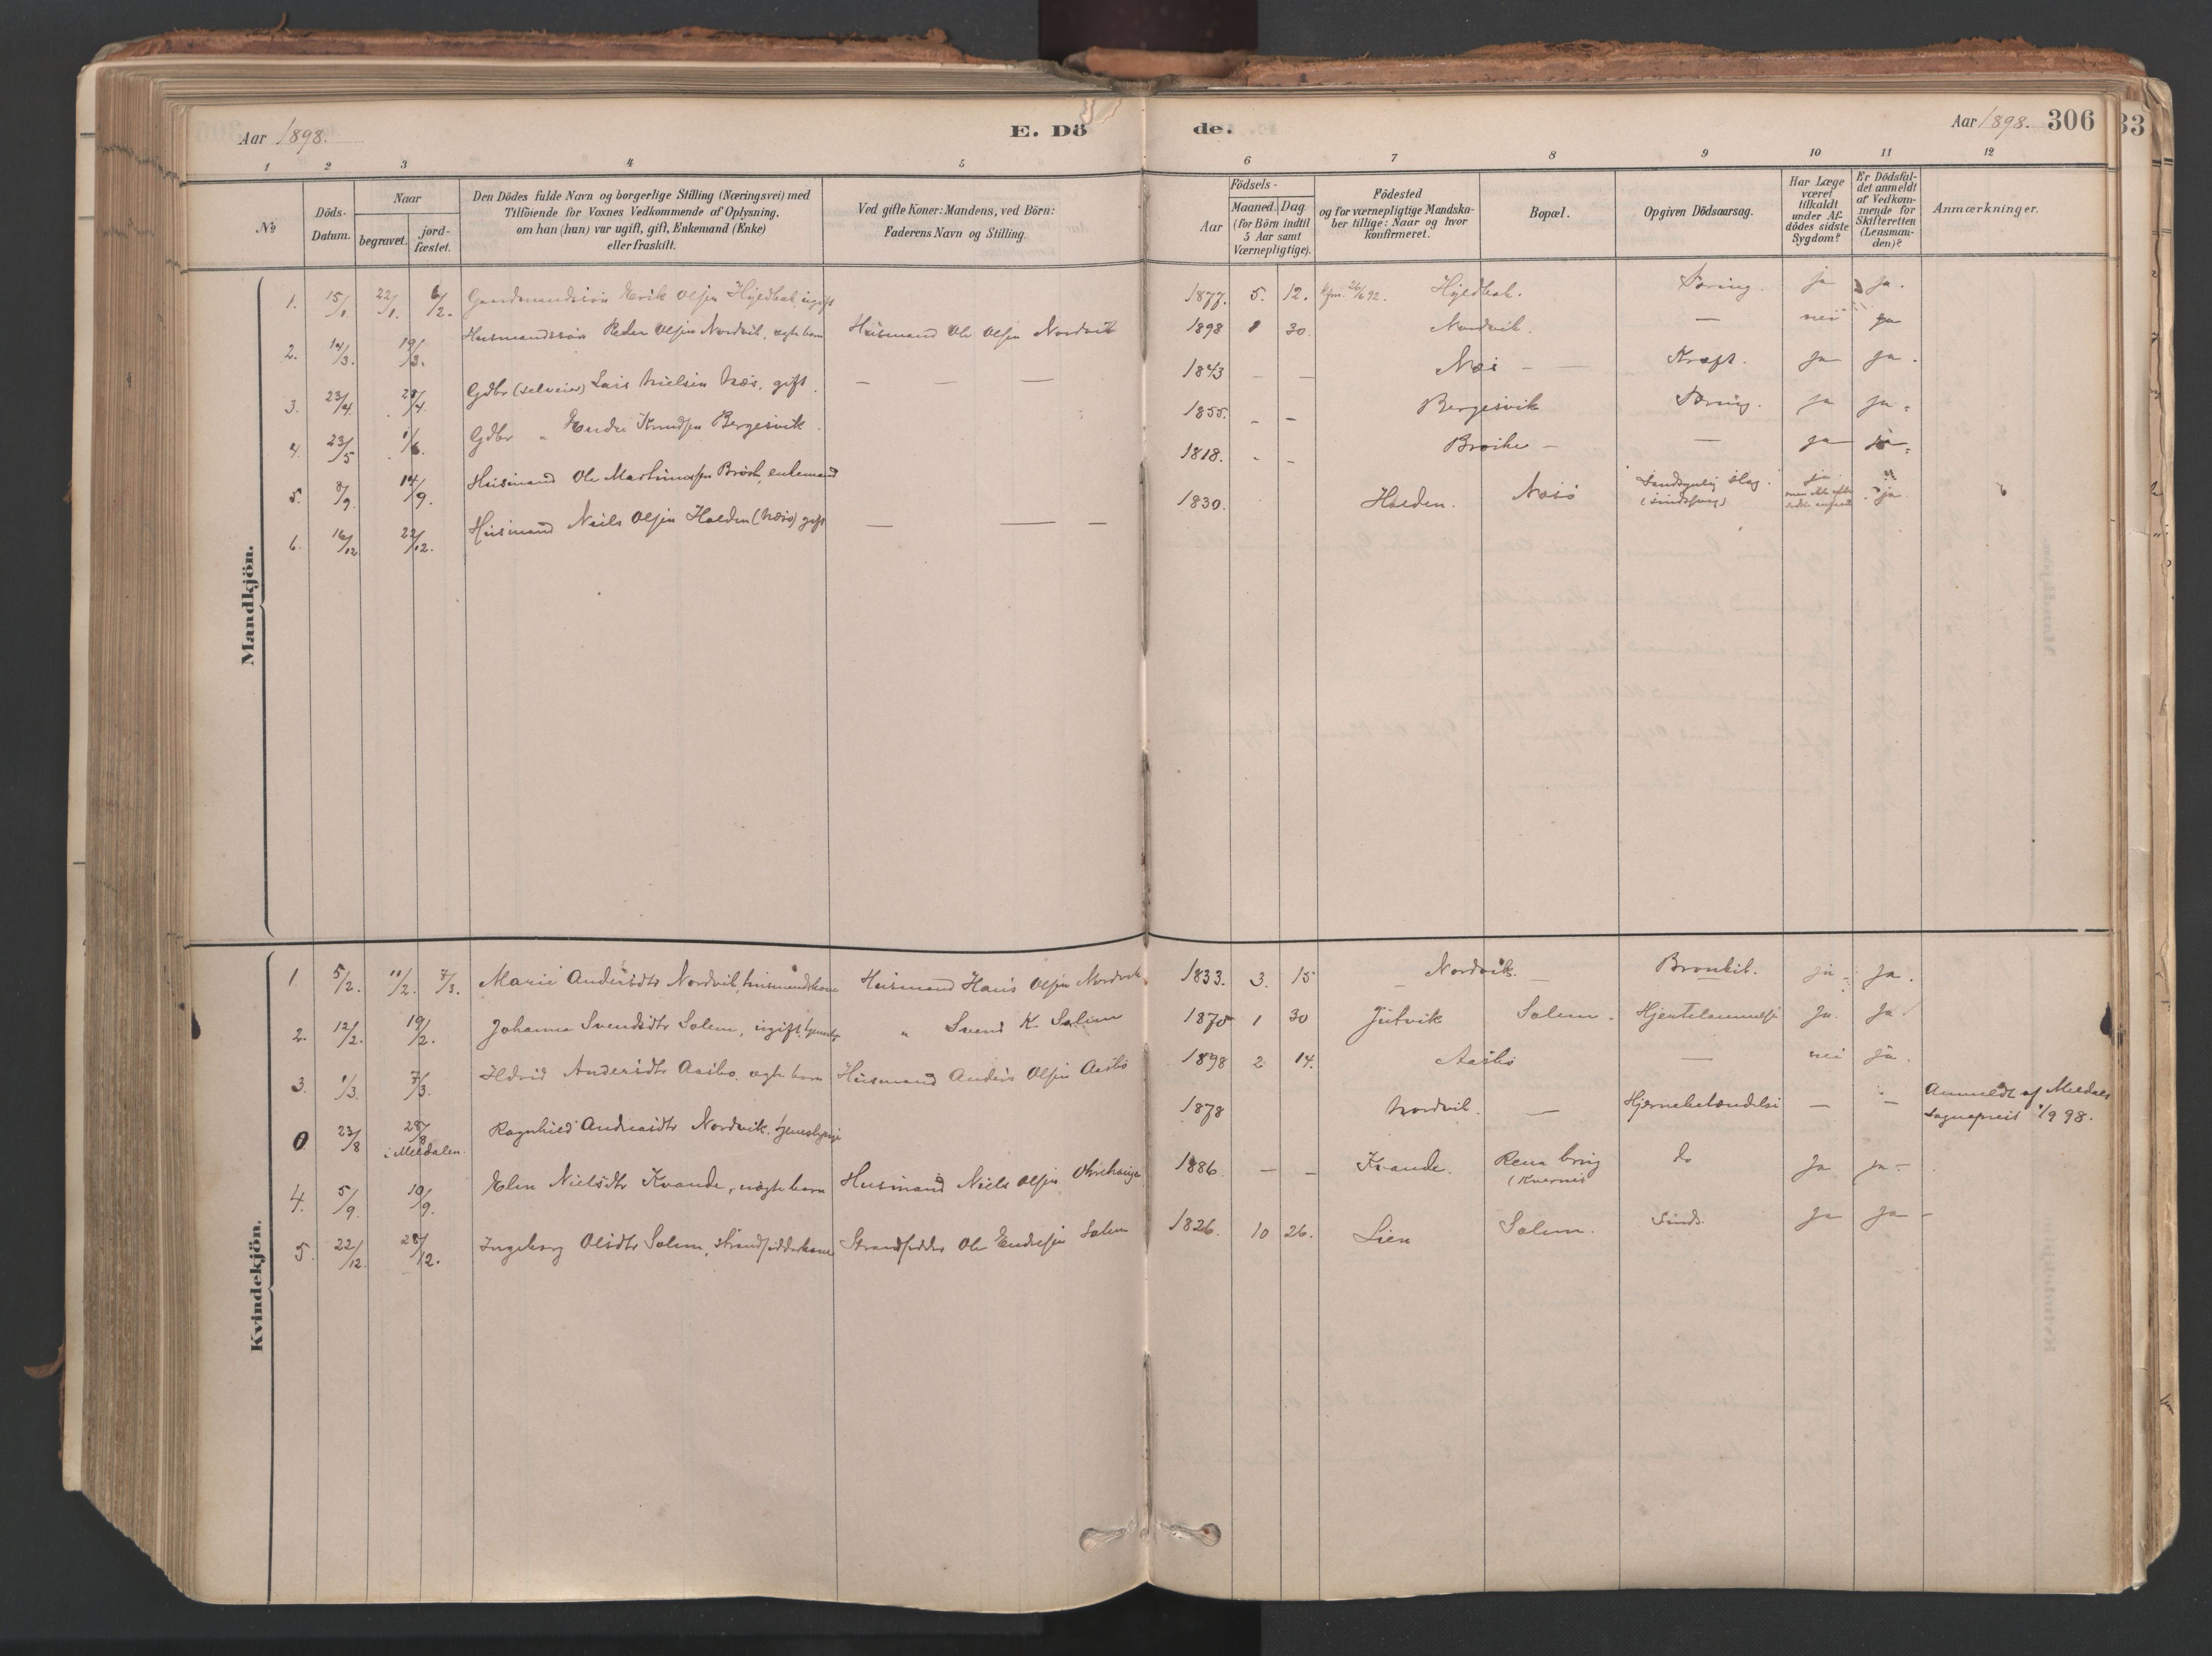 Aar 1898.
E. Dö
de.
Aar 1898. 306
33
1 2 3 4 5 6 7 8 9 10 11 12
No
Döds-Datum.
Naar
begravet.
jord-fæstet.
Den Dödes fulde Navn og borgerlige Stilling (Næringsvei) med
Tilföiende for Voxnes Vedkommende af Oplysning,
om han (hun) var ugift, gift, Enkemand (Enke)
eller fraskilt.
Ved gifte Koner: Mandens, ved Börn:
Faderens Navn og Stilling.
Födsels-
Aar
Maaned. Dag
(for Börn indtil
5 Aar samt
Værnepligtige).
Födested
og for værnepligtige Mandska-
ber tillige: Naar og hvor
konfirmeret.
Bopæl.
Opgiven Dödsaarsag.
Har Læge
været
tilkaldt
under Af-
dödes sidste
Sygdom?
Er Dödsfal-
det anmeldt
af Vedkom-
mende for
Skifteretten
(Lensman-
den)?
Anmærkninger.
Mandkjön.
1. 15/1 22/1. 6/2. Gaardmandssøn Erik Olsen ugift 1877. 5. 12. 26/6 92. Tæring. ja ja.
2. 14/3. 19/3. Husmandssøn Peder Olsen Nordvik, ægte barn Husmand Ole Olsen Nordvik 1898 1 30. Nordvik. — nei ja
3. 23/4. 28/4. Gdbr (selveier) Lars Nielsen Næs, gift. — — — 1843 — — Næs — — Kræft. ja ja.
4. 23/5 1/6. Gdbr " Endre Knudsen Bergesvik. 1855. - - Bergesvik Tæring. ja ja.
5. 8/9. 14/9. Husmand Ole enkemand 1818. - - — — ja ja.
6. 16/12 22/12. Husmand Niels Olsen Halden (Næs) gift — — — 1830. Halden. Næs Slag. ja ja
Kvindekjön.
1. 5/2. 11/2. 7/3. Marie Andersdtr Nordvik, husmandskone Husmand Hans Olsen Nordvik 1833. 3. 15 Nordvik. Bronkit. ja. Ja.
2. 12/2. 19/2. Johanna Svendsdtr Solem, ugift, " Svend K. Solem 1875 1 30 Jutvik Solem. Hjertelammelse Ja. Ja.
3. 1/3. 7/3. Andersdtr Aasbø, ægte barn Husmand Anders Olsen Aasbø 1898 2 14. Aasbø — nei ja.
0 23/8 28/8 i Meldalen. Ragnhild Andreasdtr Nordvik, tjenestepige 1878 Nordvik. — Hjernebetændelse — — Anmeldt af Meldals
Sognepræst 1/9 98.
4. 5/9. 10/9. Elen Nielsdtr Kvande, uægte barn Husmand Niels Olsen 1886. — — Kvande. (Kvernes do Ja ja -
5. 22/12. 28/12. Ingeborg Olsdtr Solem, strandsidderkone Strandsidder Ole Endresen Solem 1826. 10 26. Lien Solem. Sinds. Ja Ja -